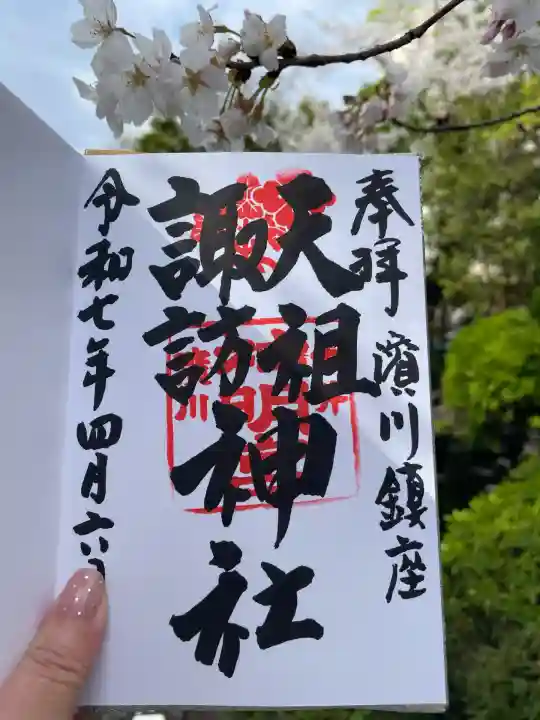 奉拝 濱川鎮座
天祖
諏訪神社
令和七年四月六